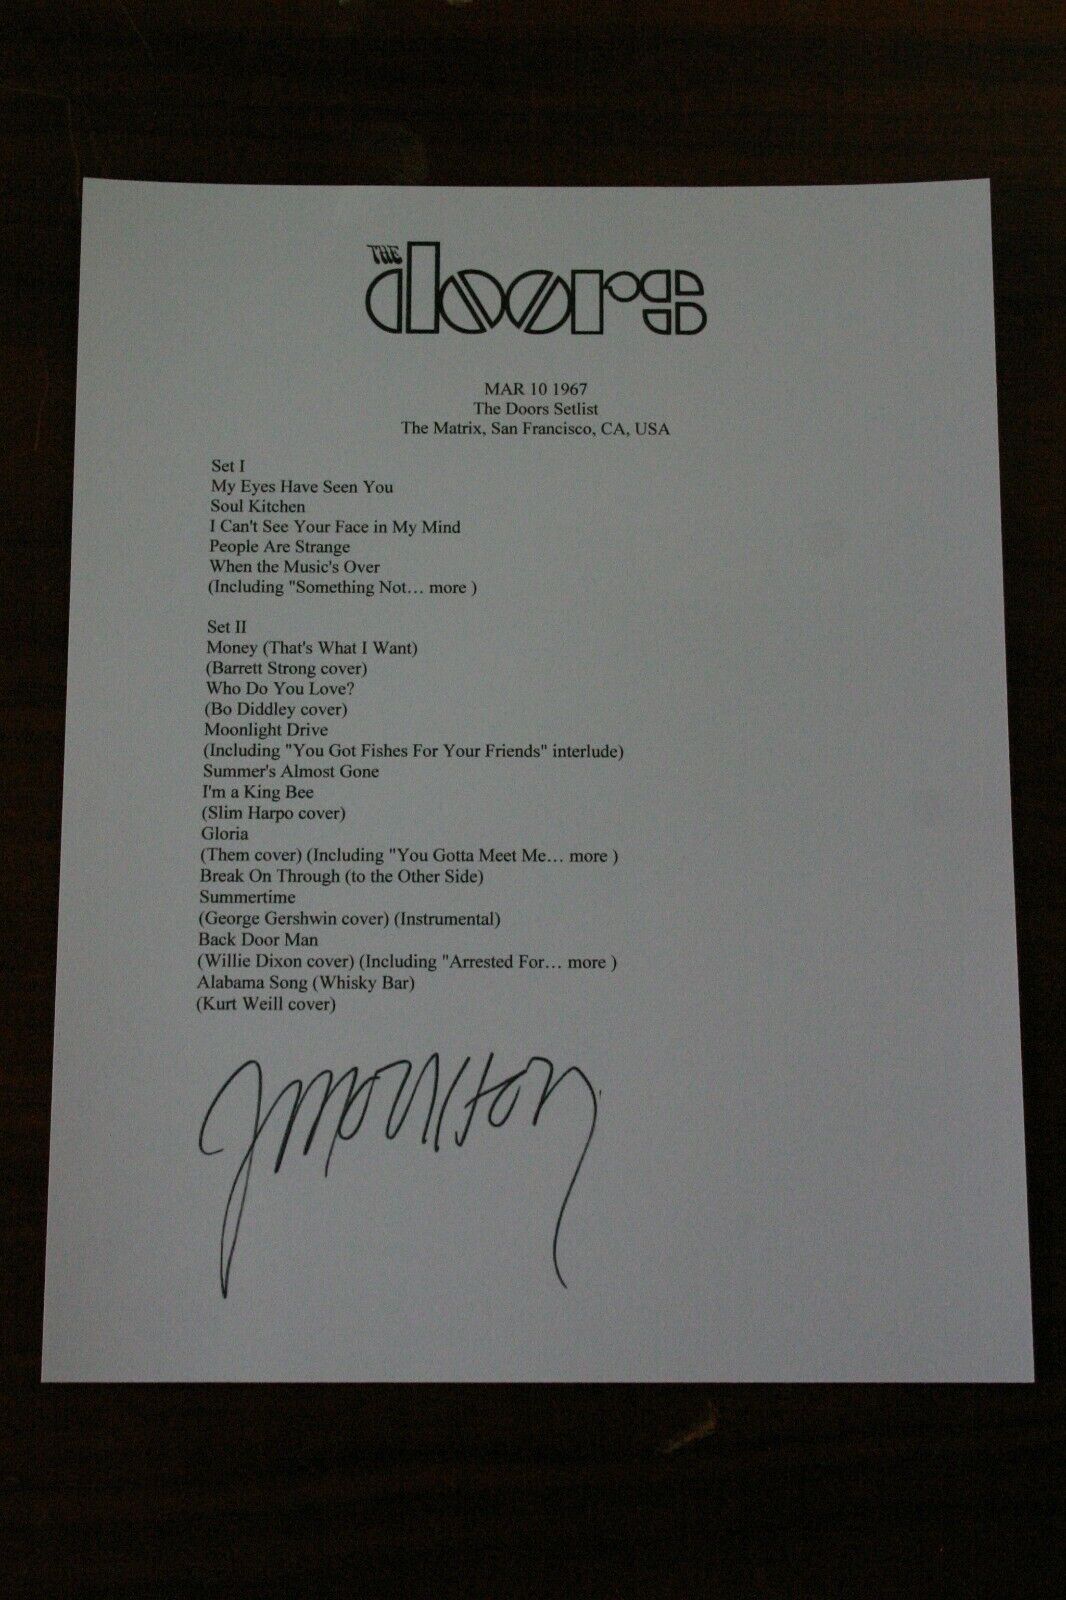 THE
doors
MAR 10 1967
The Doors Setlist
The Matrix, San Francisco, CA, USA
Set I
My Eyes Have Seen You
Soul Kitchen
I Can't See Your Face in My Mind
People Are Strange
When the Music's Over
(Including "Something Not… more )
Set II
Money (That's What I Want)
(Barrett Strong cover)
Who Do You Love?
(Bo Diddley cover)
Moonlight Drive
(Including "You Got Fishes For Your Friends" interlude)
Summer's Almost Gone
I'm a King Bee
(Slim Harpo cover)
Gloria
(Them cover) (Including "You Gotta Meet Me… more )
Break On Through (to the Other Side)
Summertime
(George Gershwin cover) (Instrumental)
Back Door Man
(Willie Dixon cover) (Including "Arrested For… more )
Alabama Song (Whisky Bar)
(Kurt Weill cover)
J Morrison